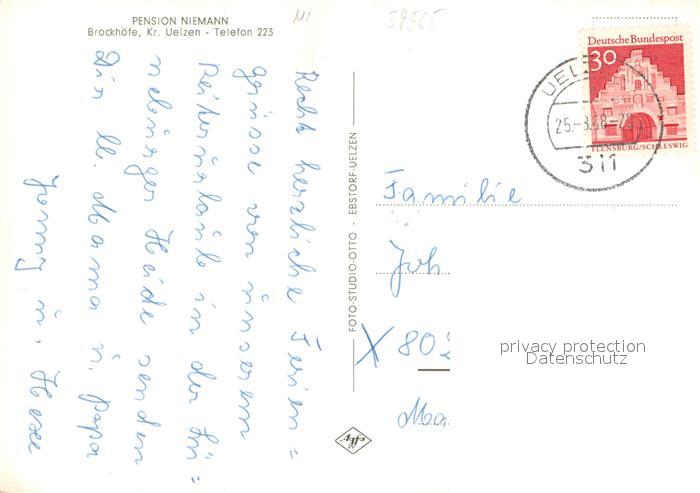 PENSION NIEMANN
Brockhöfe, Kr. Uelzen - Telefon 223
Recht herzliche Ferien=
grüsse von unserem
Reiterurlaub in der Lü=
neburger Heide senden
Dir lb. Mama u. Papa
Jonny u. Hexe
FOTO-STUDIO-OTTO - EBSTORF-UELZEN
Agfa
NI
E9565
Deutsche Bundespost
30
FLENSBURG/SCHLESWIG
UELZ
25.-8.68-20
311
Familie
Joh
X 802
Ma
privacy protection
Datenschutz